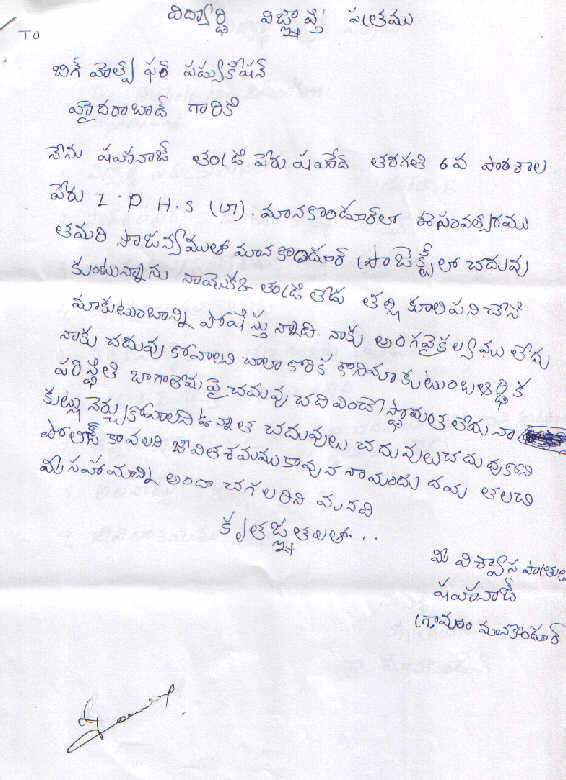 విద్యార్థి విజ్ఞాప్తి పత్రము
TO
బిగ్ హెల్ప్ ఫర్ ఎడ్యుకేషన్
హైదరాబాద్ గారికి
నేను షహనాజ్ తండ్రి పేరు షహీద్ తరగతి 6వ పాఠశాల
పేరు Z.P.H.S (బా) మానకొండూర్‌లో ఈసంవత్సరము
తమరి సౌజన్యముతో మానకొండూర్ ప్రాజెక్ట్‌లో చదువు
కుంటున్నాను నాయొక్క తండ్రి లేడు తల్లి కూలిపని చేసి
మాకుటుంబాన్ని పోషిస్తున్నాది నాకు అంగవైకల్యము లేదు
నాకు చదువు కోవాలని చాలా కోరిక కాని మా కుటుంబ ఆర్థిక
పరిస్థితి బాగాలేదు పై చదువు చదివించే స్థోమత లేదు నా
కుట్లు నేర్చుకోవాలని ఉన్నత చదువులు చదువుకొని
పోలీస్ కావలని జీవితశయము కావున నాయందు దయ తలచి
మీ సహాయాన్ని అందా చగలరిని మనవి
కృతజ్ఞతలతో...
మీ విశ్వాస పాత్రులు
షహనాజ్
గ్రామం మానకొండూర్